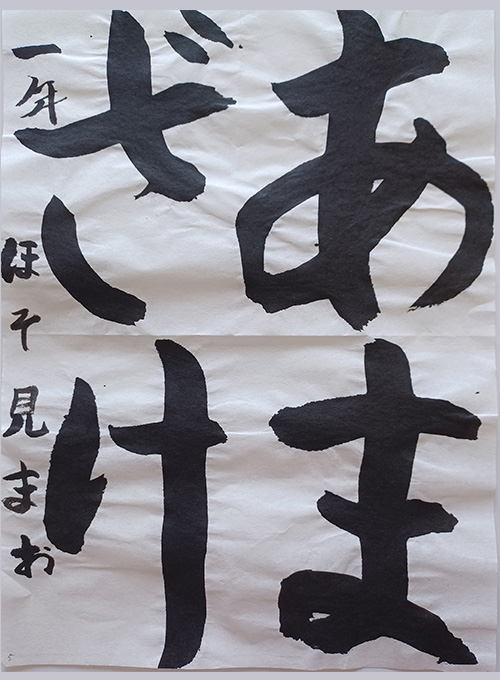 あま
ざけ
一年 ほそ見まお